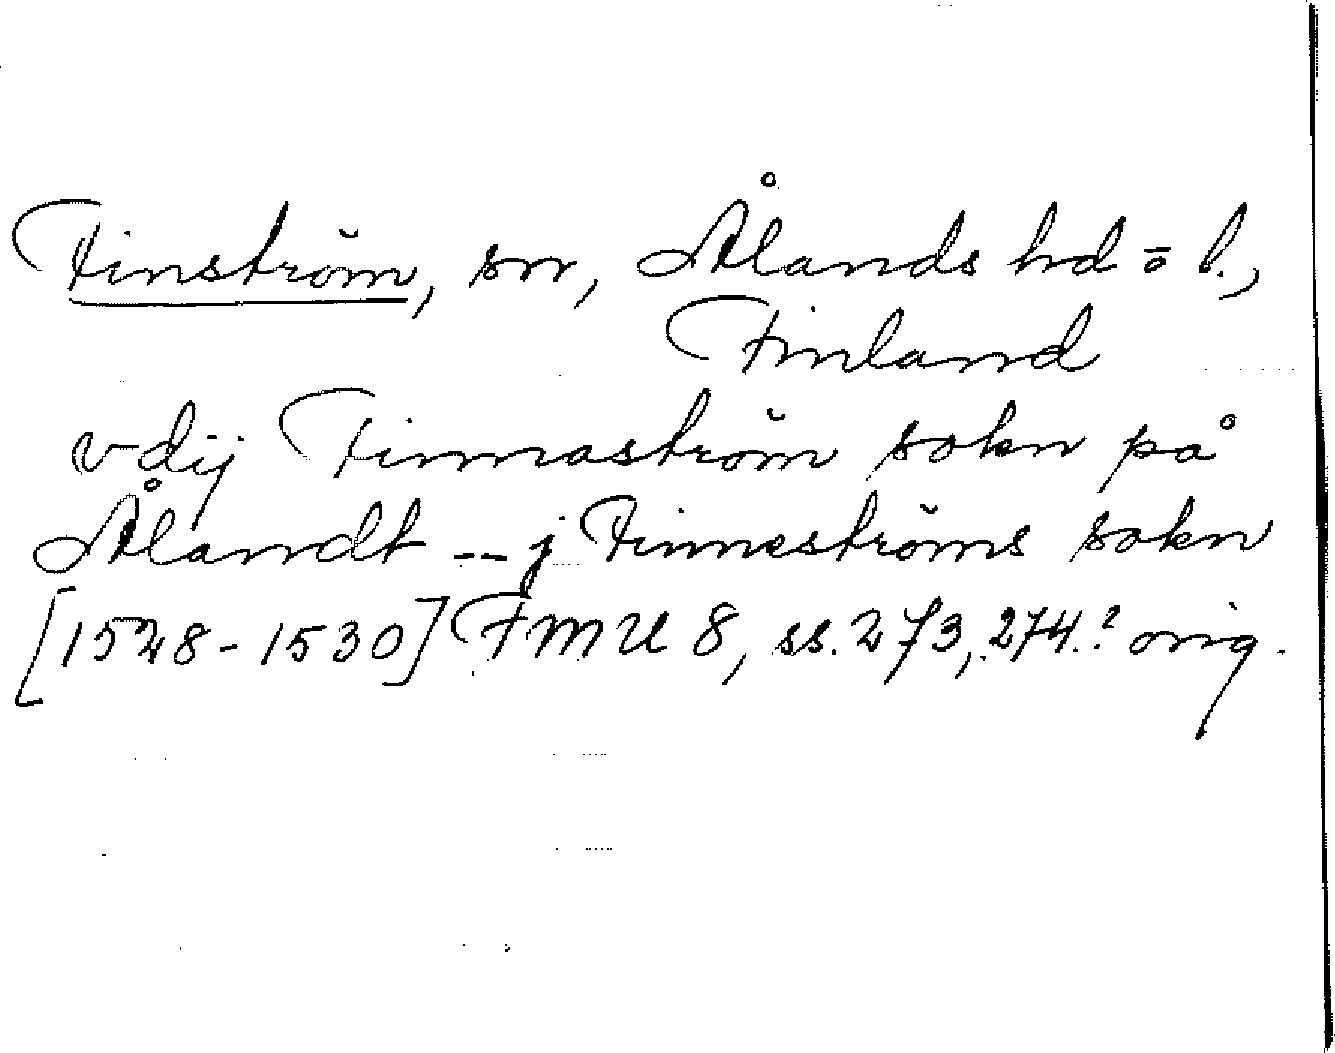 Finström, sn, Ålands hd o l.,
Finland
vdij Finnaström sokn på
Ålandt -- j Finneströms sokn
[1528-1530] FMU 8, ss. 273, 274.? orig.